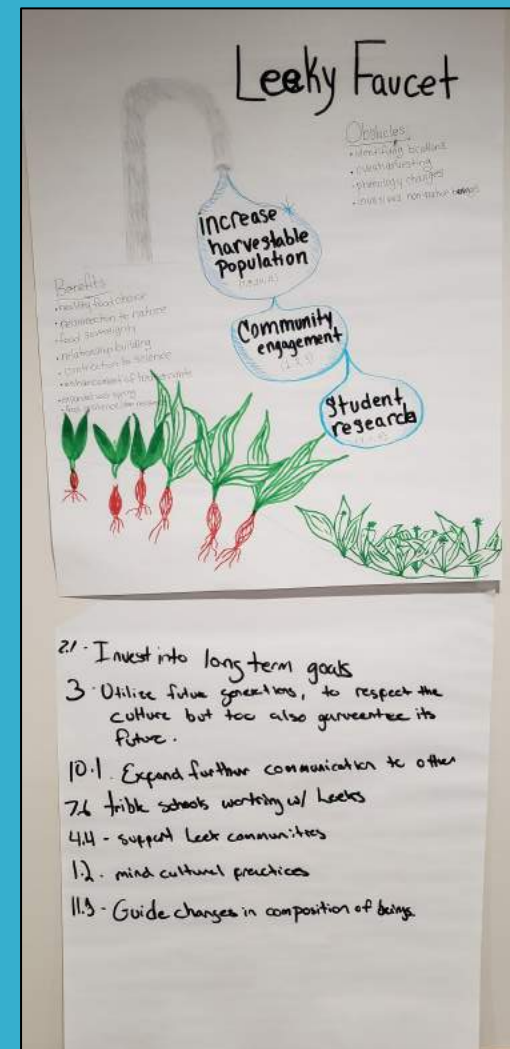 Leeky Faucet
Obstacles
• identifying locations
• overharvesting
• phenology changes
• invasives non-native beings
increase
harvestable
population
Community
engagement
Student
research
Benefits
• healthy food choice
• reconnection to nature
• food sovereignty
• relationship building
• contribution to science
• enhancement of
2.1 - Invest into long term goals
3 - Utilize future generations, to respect the
culture but too also garveentee its
future.
10.1. Expand further communication to other
7.6 trible schools working w/ Leeks
4.4 - support Leek communities
1.2 - mind cultural practices
11.3 - Guide changes in composition of beings.